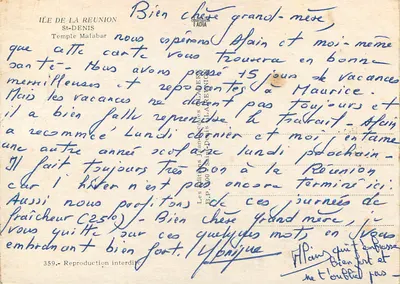 ILE DE LA REUNION
St-DENIS
Temple Malabar
Bien chère grand-mère,
nous espérons Alain et moi-même
que cette carte vous trouvera en bonne
santé - Nous avons passé 15 jours de vacances
merveilleuses et reposantes à Maurice -
Mais les vacances ne durent pas toujours et
il a bien fallu reprendre le travail - Alain
a recommencé lundi dernier et moi j'entame
une autre année scolaire lundi prochain -
Il fait toujours très bon à la Réunion
car l'hiver n'est pas encore terminé ici.
Aussi nous profitons de ces journées de
fraîcheur (25°) - Bien chère grand mère, je
vous quitte sur ces quelques mots, en vous
embrassant bien fort.
Alain qui t'embrasse
bien fort et
ne t'oublie pas -
359.- Reproduction interdite